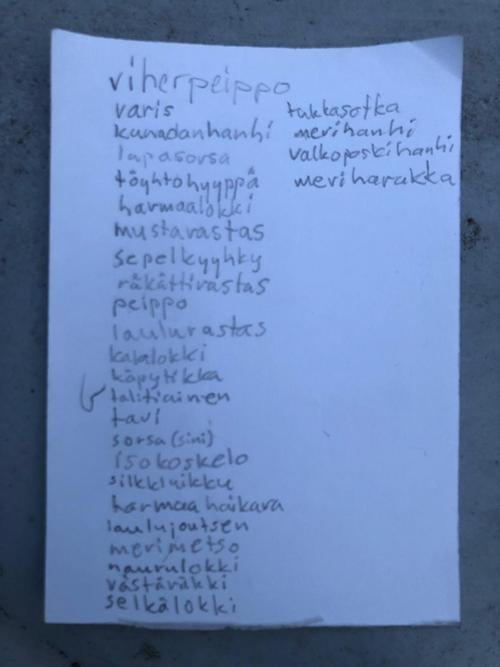 viherpeippo
varis
kanadanhanhi
lapasorsa
töyhtöhyyppä
harmaalokki
mustarastas
sepelkyyhky
räkättirastas
peippo
laulurastas
kalalokki
käpytikka
talitiainen
tavi
sorsa (sini)
isokoskelo
silkkiuikku
harmaahaikara
laulujoutsen
merimetso
naurulokki
västäräkki
selkälokki
tukkasotka
merihanhi
valkoposkihanhi
meriharakka